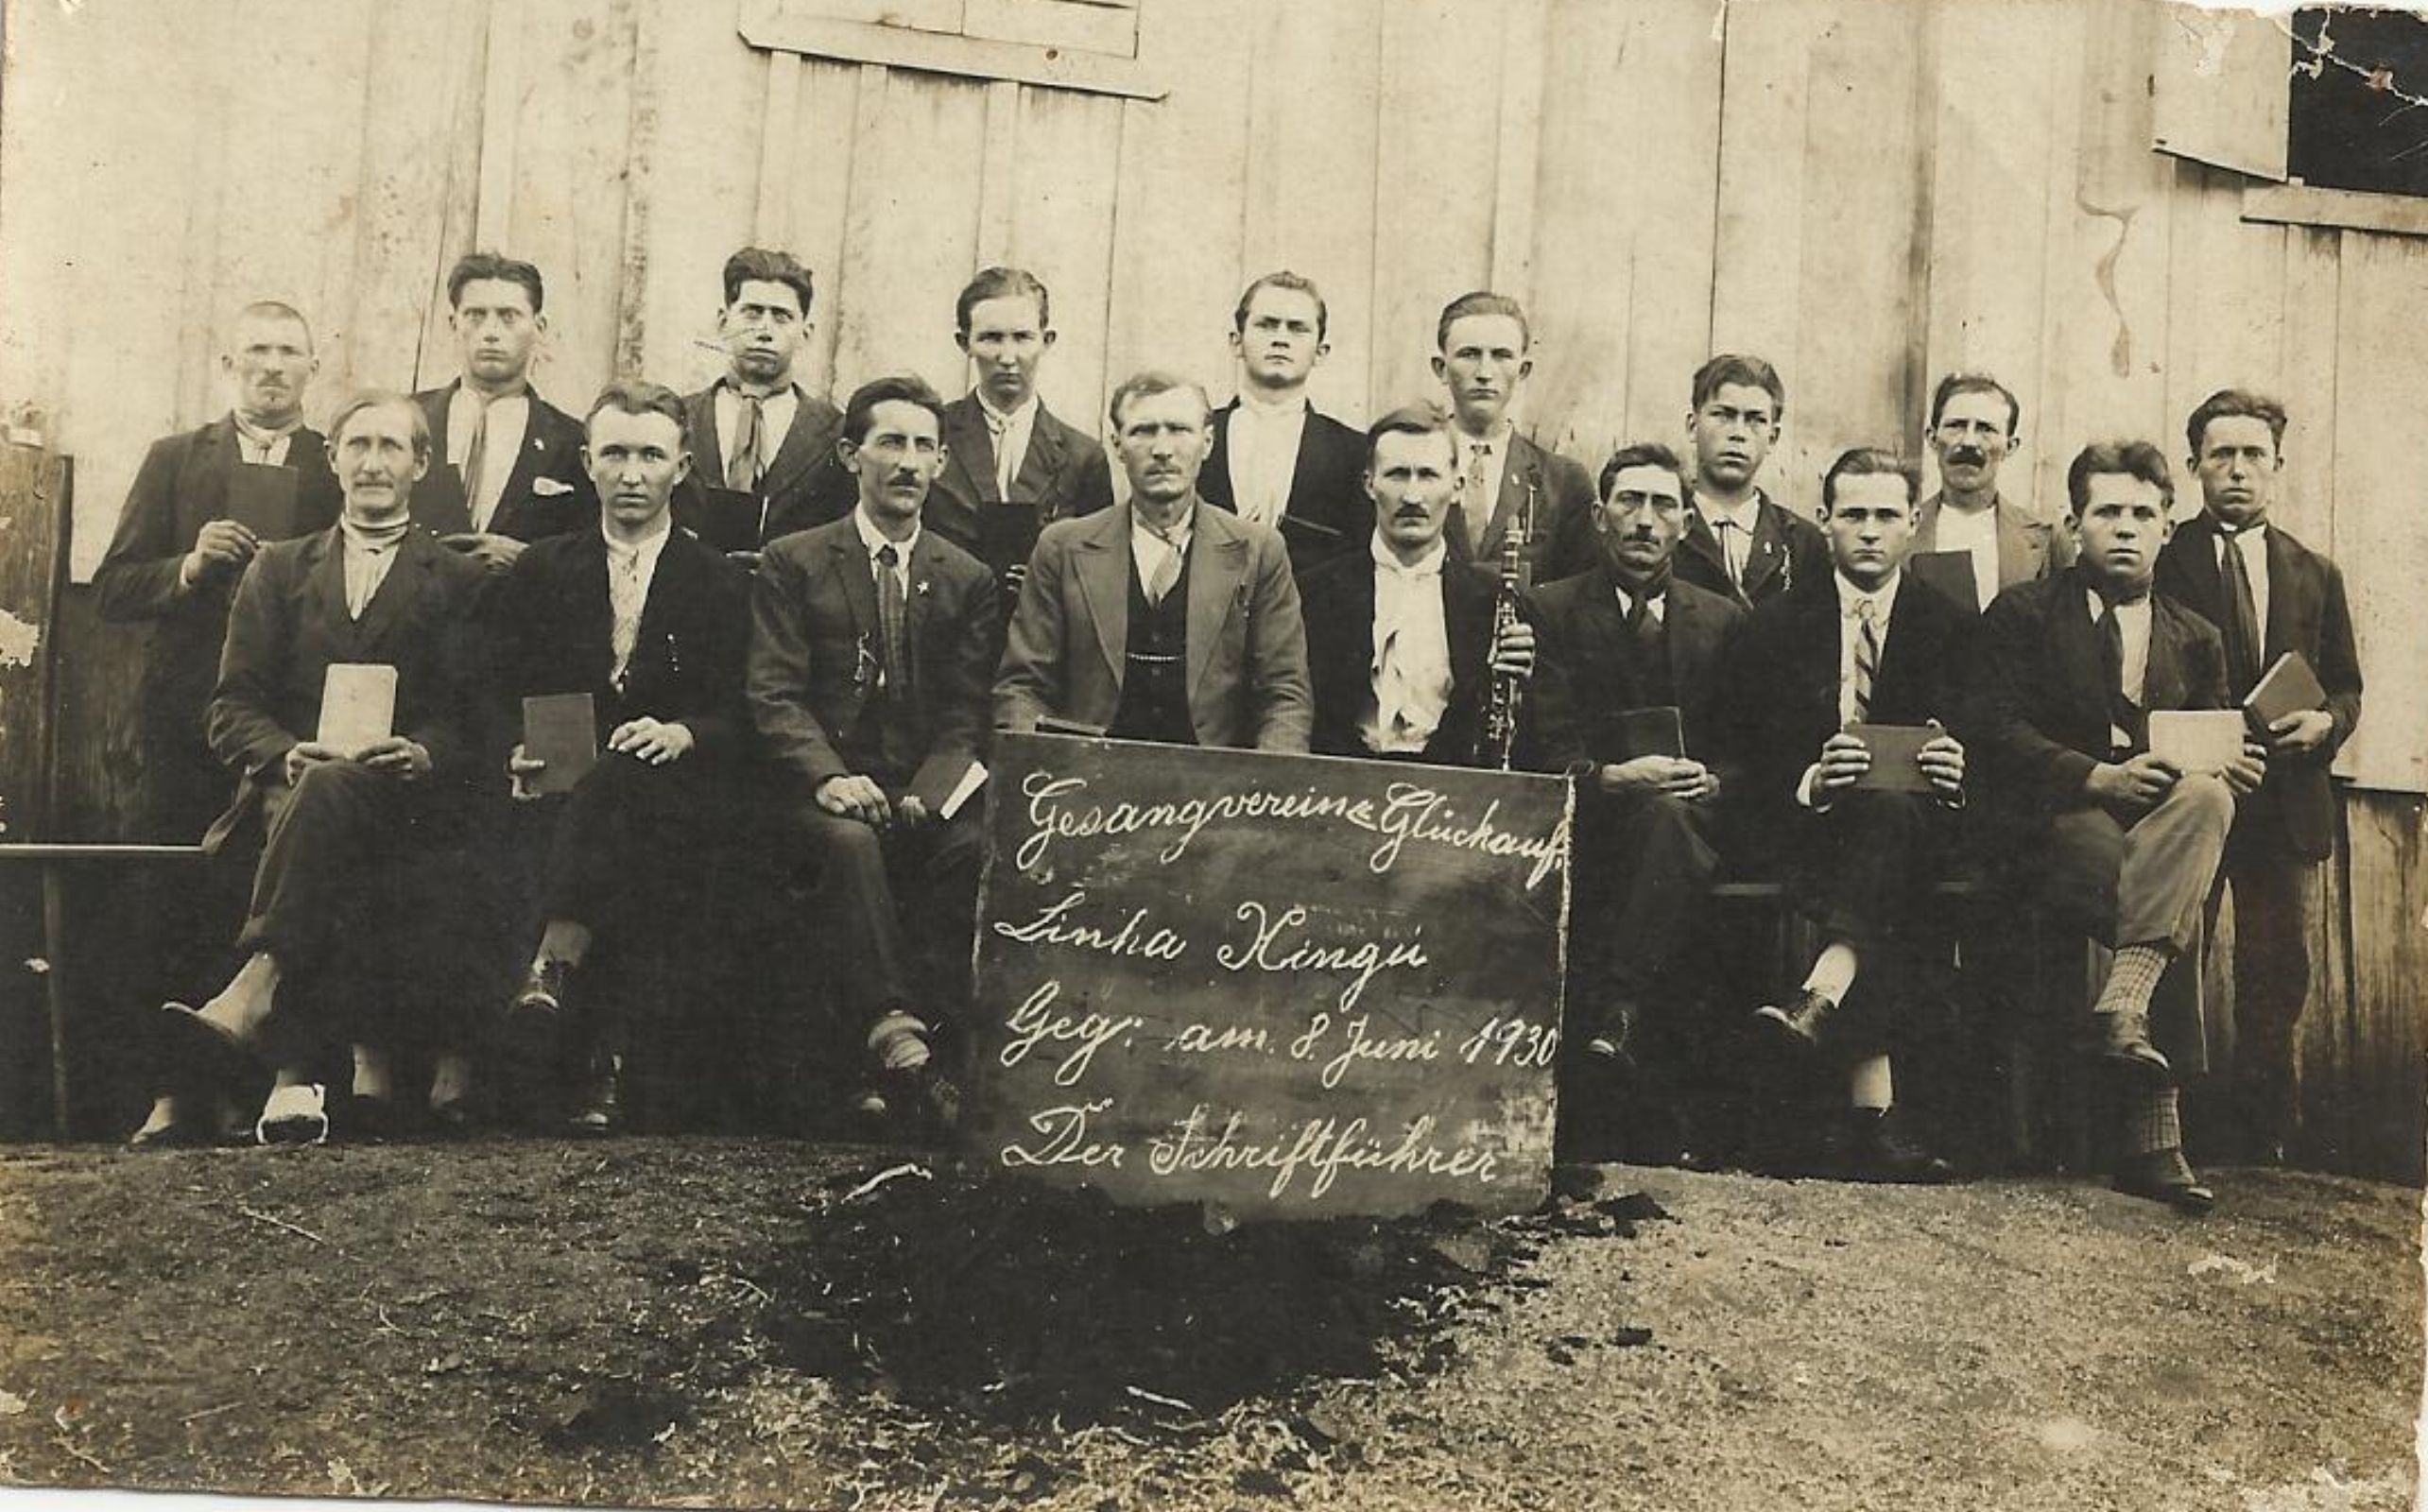 Gesangverein „Glückauf“
Linha Xingú
Geg: am. 8. Juni 1930
Der Schriftführer